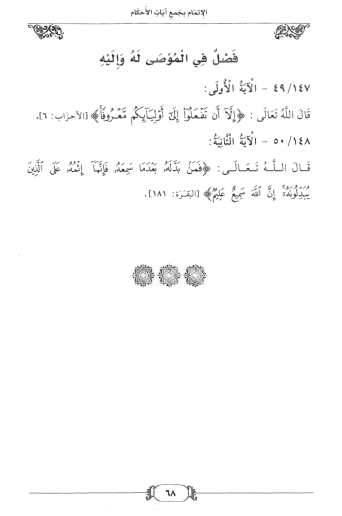 الإتمام بجمع آيات الأحكام
فَصْلٌ فِي الْمُوْصَى لَهُ وَإِلَيْهِ
٤٩/١٤٧ - الْآيَةُ الْأُولَى:
قَالَ اللَّهُ تَعَالَى: ﴿إِلَّا أَن تَفْعَلُوا إِلَىٰ أَوْلِيَائِكُم مَّعْرُوفًا﴾ [الأحزاب: ٦].
٥٠/١٤٨ - الْآيَةُ الثَّانِيَةُ:
قَالَ اللَّهُ تَعَالَى: ﴿فَمَنْ بَدَّلَهُ بَعْدَمَا سَمِعَهُ فَإِنَّمَا إِثْمُهُ عَلَى الَّذِينَ
يُبَدِّلُونَهُ إِنَّ اللَّهَ سَمِيعٌ عَلِيمٌ﴾ [البقرة: ١٨١].
٦٨